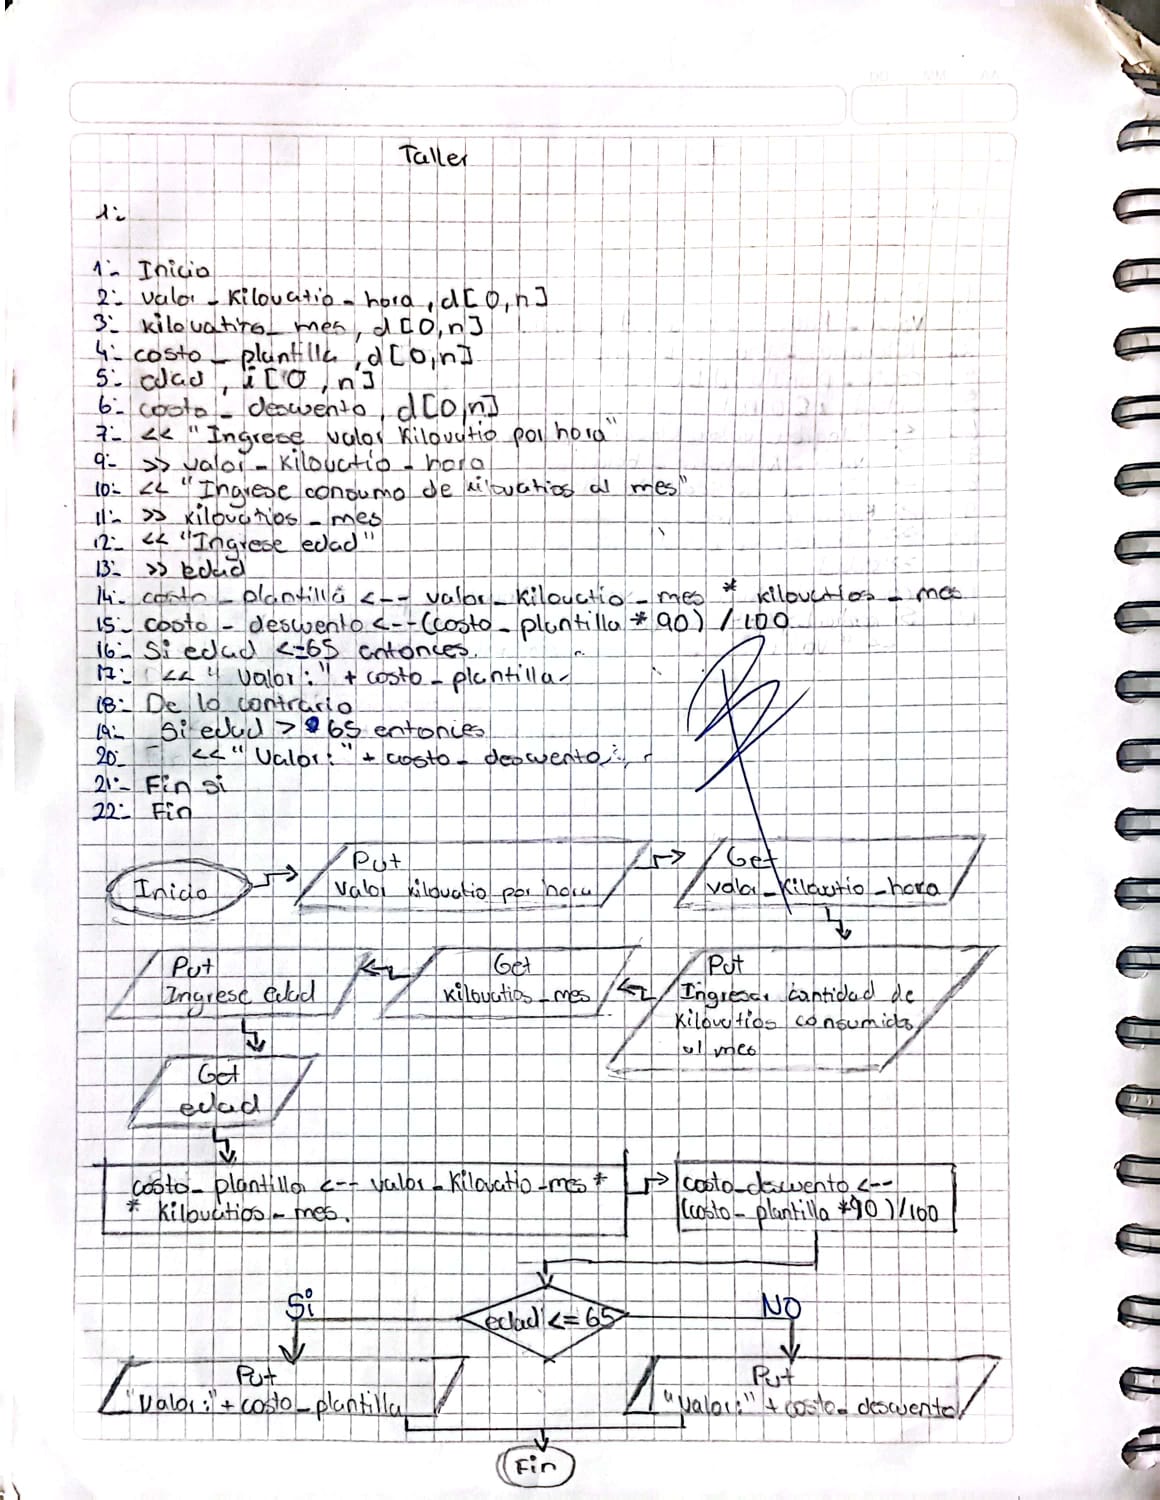 Taller
1:
1:- Inicio
2:- valor - Kilovatio - hora, d[0,n]
3:- kilovatiro_ mes, d[0,n]
4:- costo - plantilla, d[0,n]
5:- edad, i[0,n]
6:- costo - descuento, d[0,n]
7:- << "Ingrese valor Kilovatio por hora"
9:- >> valor - Kilovatio - hora
10:- << "Ingrese consumo de kilovatios al mes"
11:- >> kilovatios - mes
12:- << "Ingrese edad"
13:- >> edad
14:- costo - plantilla <-- valor - Kilovatio - mes * kilovatios - mes
15:- costo - descuento <--(costo - plantilla * 90) / 100
16:- Si edad <=65 entonces
17:- << "Valor:" + costo - plantilla
18:- De lo contrario
19:- Si edad > 65 entonces
20:- << "Valor:" + costo - descuento
21:- Fin si
22:- Fin
Inicio
Put
Valor kilovatio por hora
Get
valor_Kilovatio_hora
Put
Ingrese edad
Get
kilovatios_mes
Put
Ingresar cantidad de
Kilovatios consumido
al mes
Get
edad
costo - plantilla <-- valor - Kilovatio - mes *
* kilovatios - mes.
costo_descuento <--
(costo - plantilla *90)/100
edad <= 65
Si
NO
Put
"Valor:" + costo - plantilla
Put
"Valor:" + costo - descuento
Fin